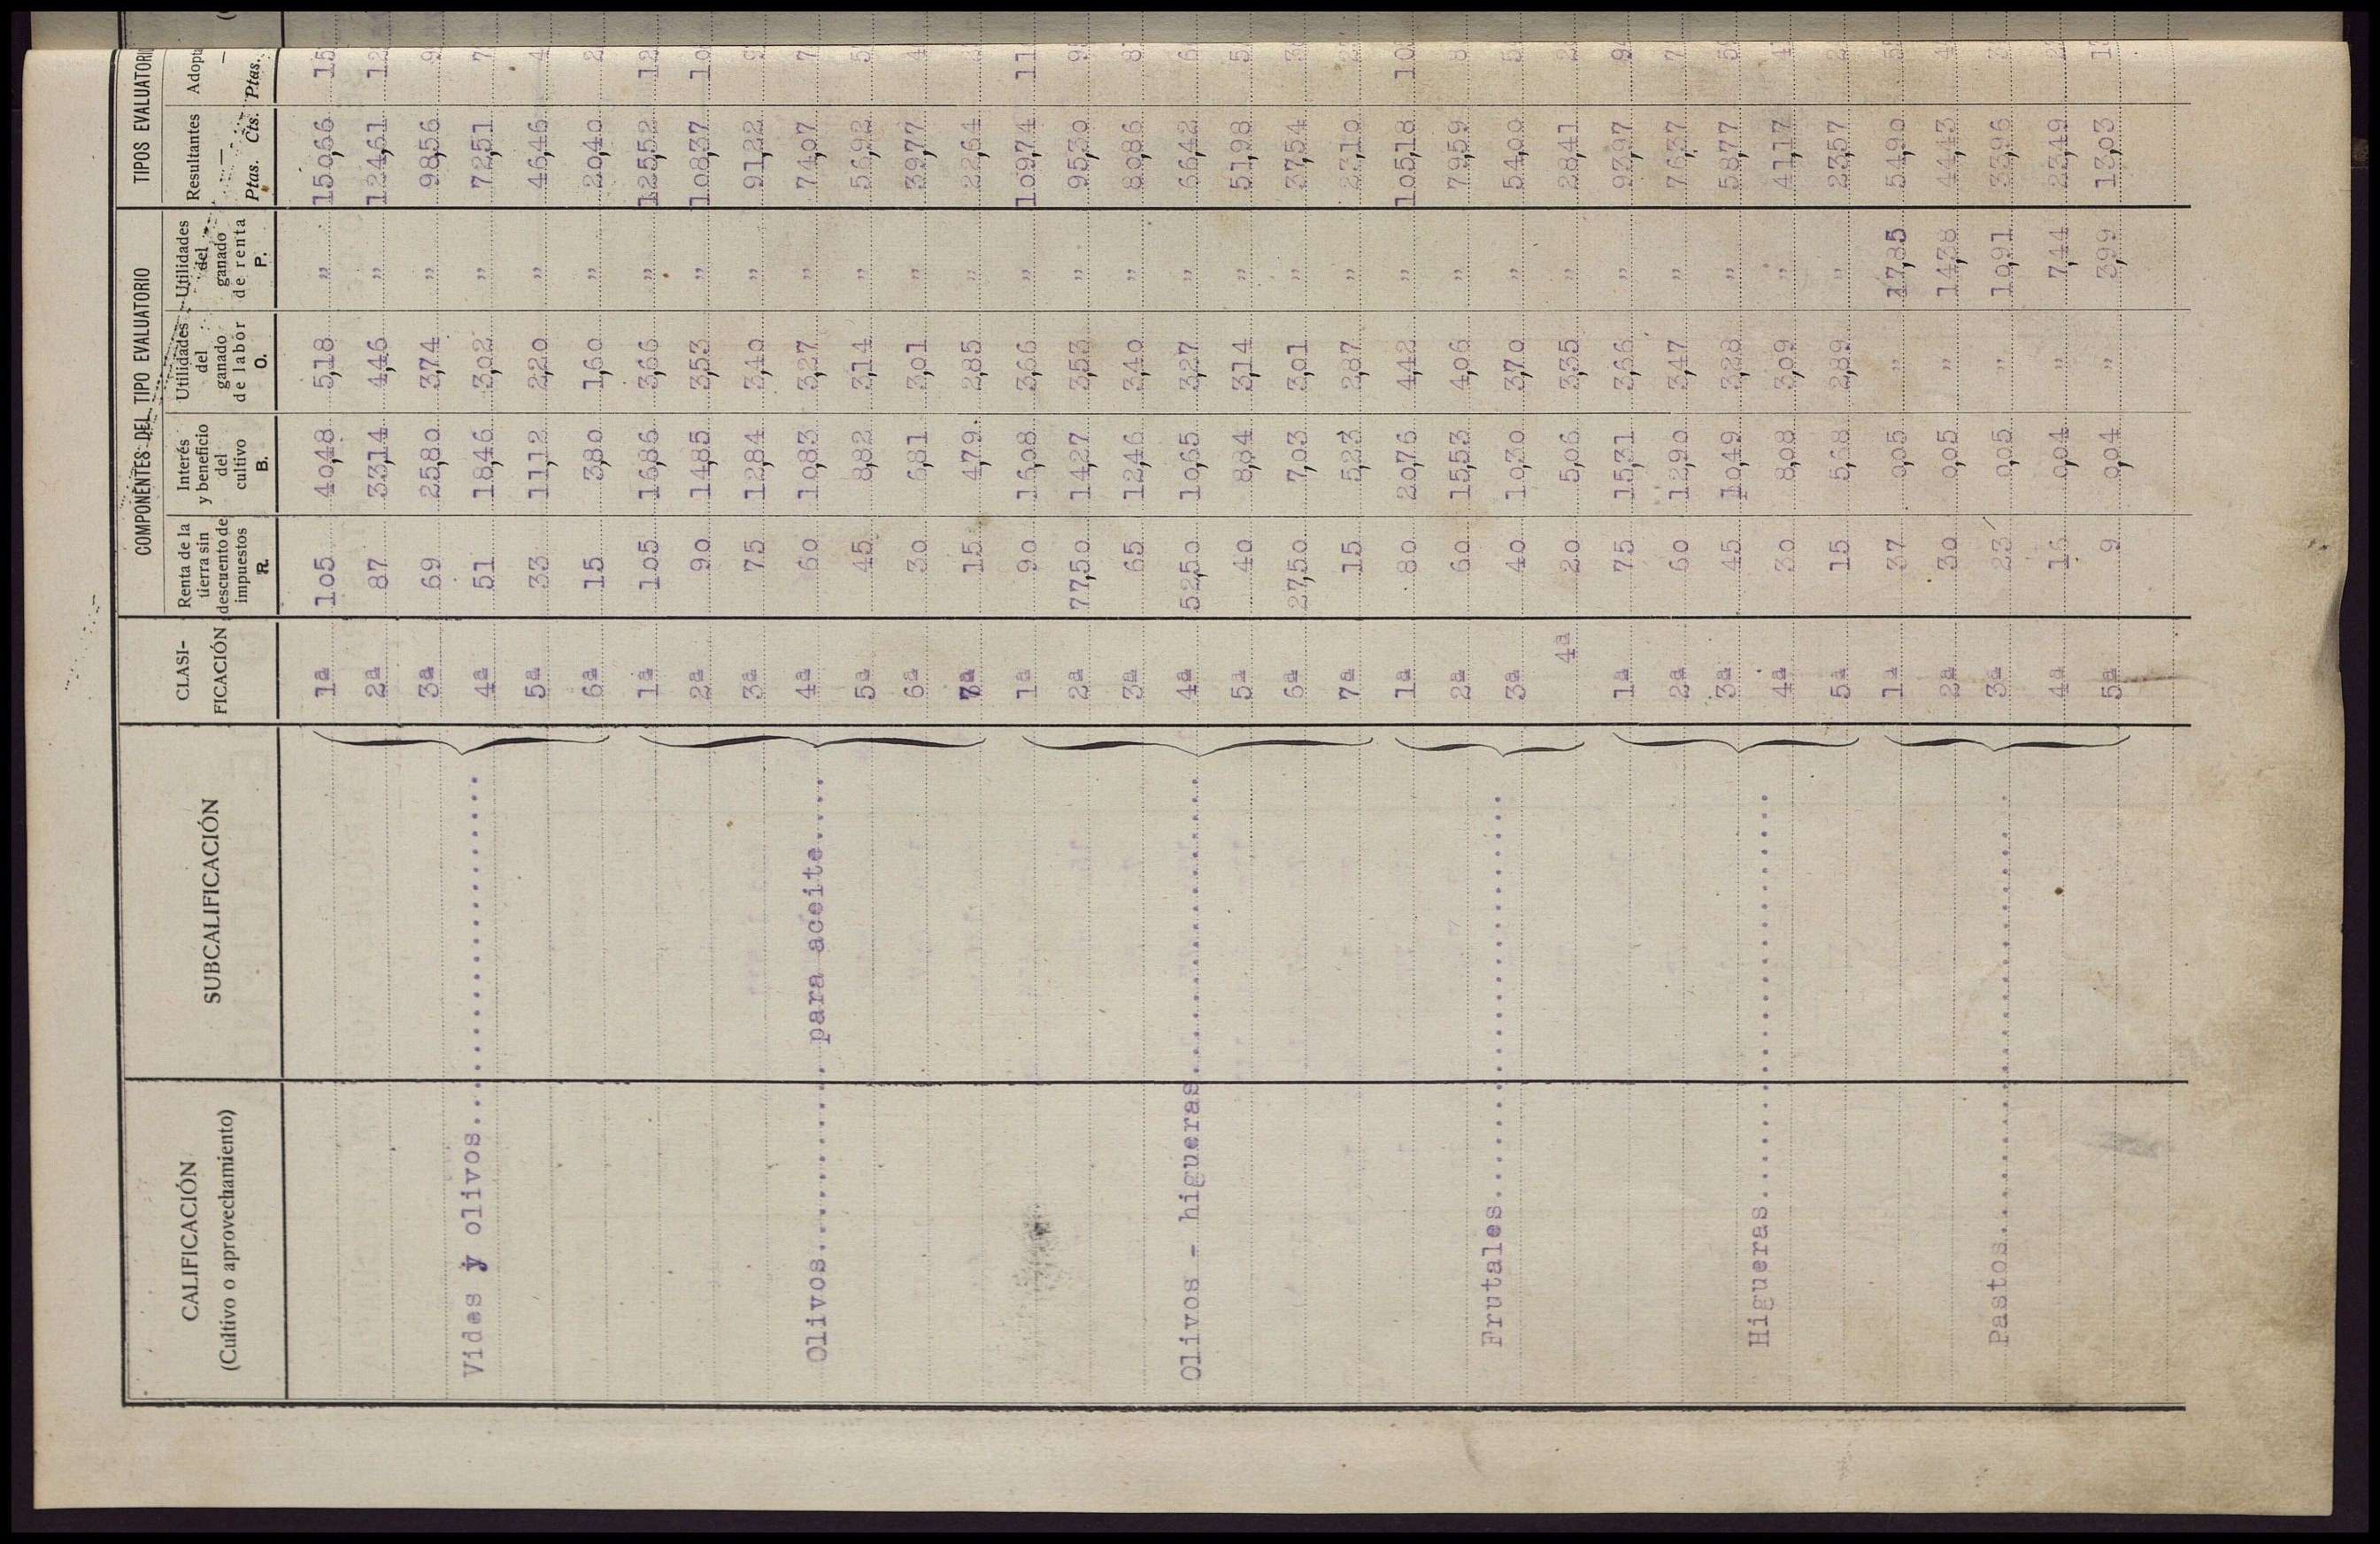 CALIFICACIÓN
(Cultivo o aprovechamiento)
SUBCALIFICACIÓN
CLASI-
FICACIÓN
COMPONENTES DEL TIPO EVALUATORIO
Renta de la
tierra sin
descuento de
impuestos
R.
Interés
y beneficio
del
cultivo
B.
Utilidades
del
ganado
de labor
O.
Utilidades
del
ganado
de renta
P.
TIPOS EVALUATORIO
Resultantes
—
Ptas. Cts.
Adopt
—
Ptas.
1ª 105 40,48 5,18 " 150,66 15
2ª 87 33,14 4,46 " 124,61 12
3ª 69 25,80 3,74 " 98,56 9
Vides y olivos........................... 4ª 51 18,46 3,02 " 72,51 7
5ª 33 11,12 2,20 " 46,46 4
6ª 15 3,80 1,60 " 20,40 2
1ª 105 16,86 3,66 " 125,52 12
2ª 90 14,85 3,53 " 108,37 10
3ª 75 12,84 3,40 " 91,22 9
Olivos.............para aceite..... 4ª 60 10,83 3,27 " 74,07 7
5ª 45 8,82 3,14 " 56,92 5
6ª 30 6,81 3,01 " 39,77 4
7ª 15 4,79 2,85 " 22,64
1ª 90 16,08 3,66 " 109,74 11
2ª 77,50 14,27 3,53 " 95,30 9
3ª 65 12,46 3,40 " 80,86 8
Olivos - higueras...................... 4ª 52,50 10,65 3,27 " 66,42 6
5ª 40 8,84 3,14 " 51,98 5
6ª 27,50 7,03 3,01 " 37,54 3
7ª 15 5,23 2,87 " 23,10 2
1ª 80 20,76 4,42 " 105,18 10
2ª 60 15,53 4,06 " 79,59 8
Frutales............................ 3ª 40 10,30 3,70 " 54,00 5
4ª 20 5,06 3,35 " 28,41 2
1ª 75 15,31 3,66 " 93,97 9
2ª 60 12,90 3,47 " 76,37 7
Higueras............................ 3ª 45 10,49 3,28 " 58,77 5
4ª 30 8,08 3,09 " 41,17 4
5ª 15 5,68 2,89 " 23,57 2
1ª 37 0,05 " 17,85 54,90 5
2ª 30 0,05 " 14,38 44,43 4
Pastos............................ 3ª 23 0,05 " 10,91 33,96 3
4ª 16 0,04 " 7,44 23,49 2
5ª 9 0,04 " 3,99 13,03 1